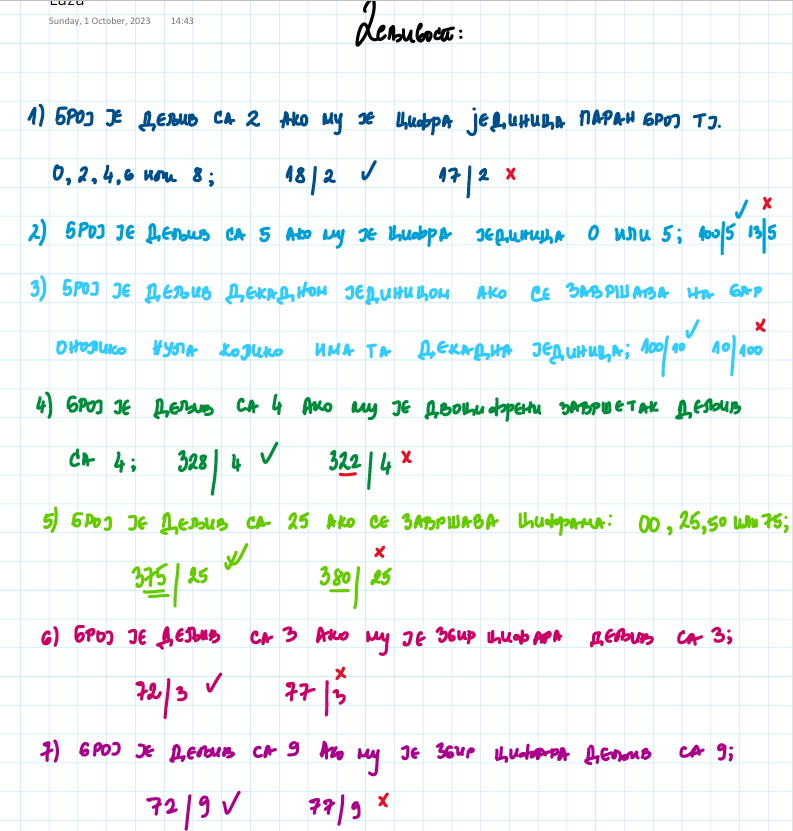 Sunday, 1 October, 2023 14:43
Дељивост:
1) БРОЈ ЈЕ ДЕЉИВ СА 2 АКО МУ ЈЕ ЦИФРА ЈЕДИНИЦА ПАРАН БРОЈ ТЈ.
0, 2, 4, 6 или 8; 18|2 ✓ 17|2 ×
2) БРОЈ ЈЕ ДЕЉИВ СА 5 АКО МУ ЈЕ ЦИФРА ЈЕДИНИЦА 0 ИЛИ 5; 100|5 ✓ 13|5 ×
3) БРОЈ ЈЕ ДЕЉИВ ДЕКАДНОМ ЈЕДИНИЦОМ АКО СЕ ЗАВРШАВА НА БАР
ОНОЛИКО НУЛА КОЛИКО ИМА ТА ДЕКАДНА ЈЕДИНИЦА; 100|10 ✓ 10|100 ×
4) БРОЈ ЈЕ ДЕЉИВ СА 4 АКО МУ ЈЕ ДВОЦИФРЕНИ ЗАВРШЕТАК ДЕЉИВ
СА 4; 328|4 ✓ 322|4 ×
5) БРОЈ ЈЕ ДЕЉИВ СА 25 АКО СЕ ЗАВРШАВА ЦИФРАМА: 00, 25, 50 ИЛИ 75;
375|25 ✓ 380|25 ×
6) БРОЈ ЈЕ ДЕЉИВ СА 3 АКО МУ ЈЕ ЗБИР ЦИФАРА ДЕЉИВ СА 3;
72|3 ✓ 77|3 ×
7) БРОЈ ЈЕ ДЕЉИВ СА 9 АКО МУ ЈЕ ЗБИР ЦИФАРА ДЕЉИВ СА 9;
72|9 ✓ 77|9 ×